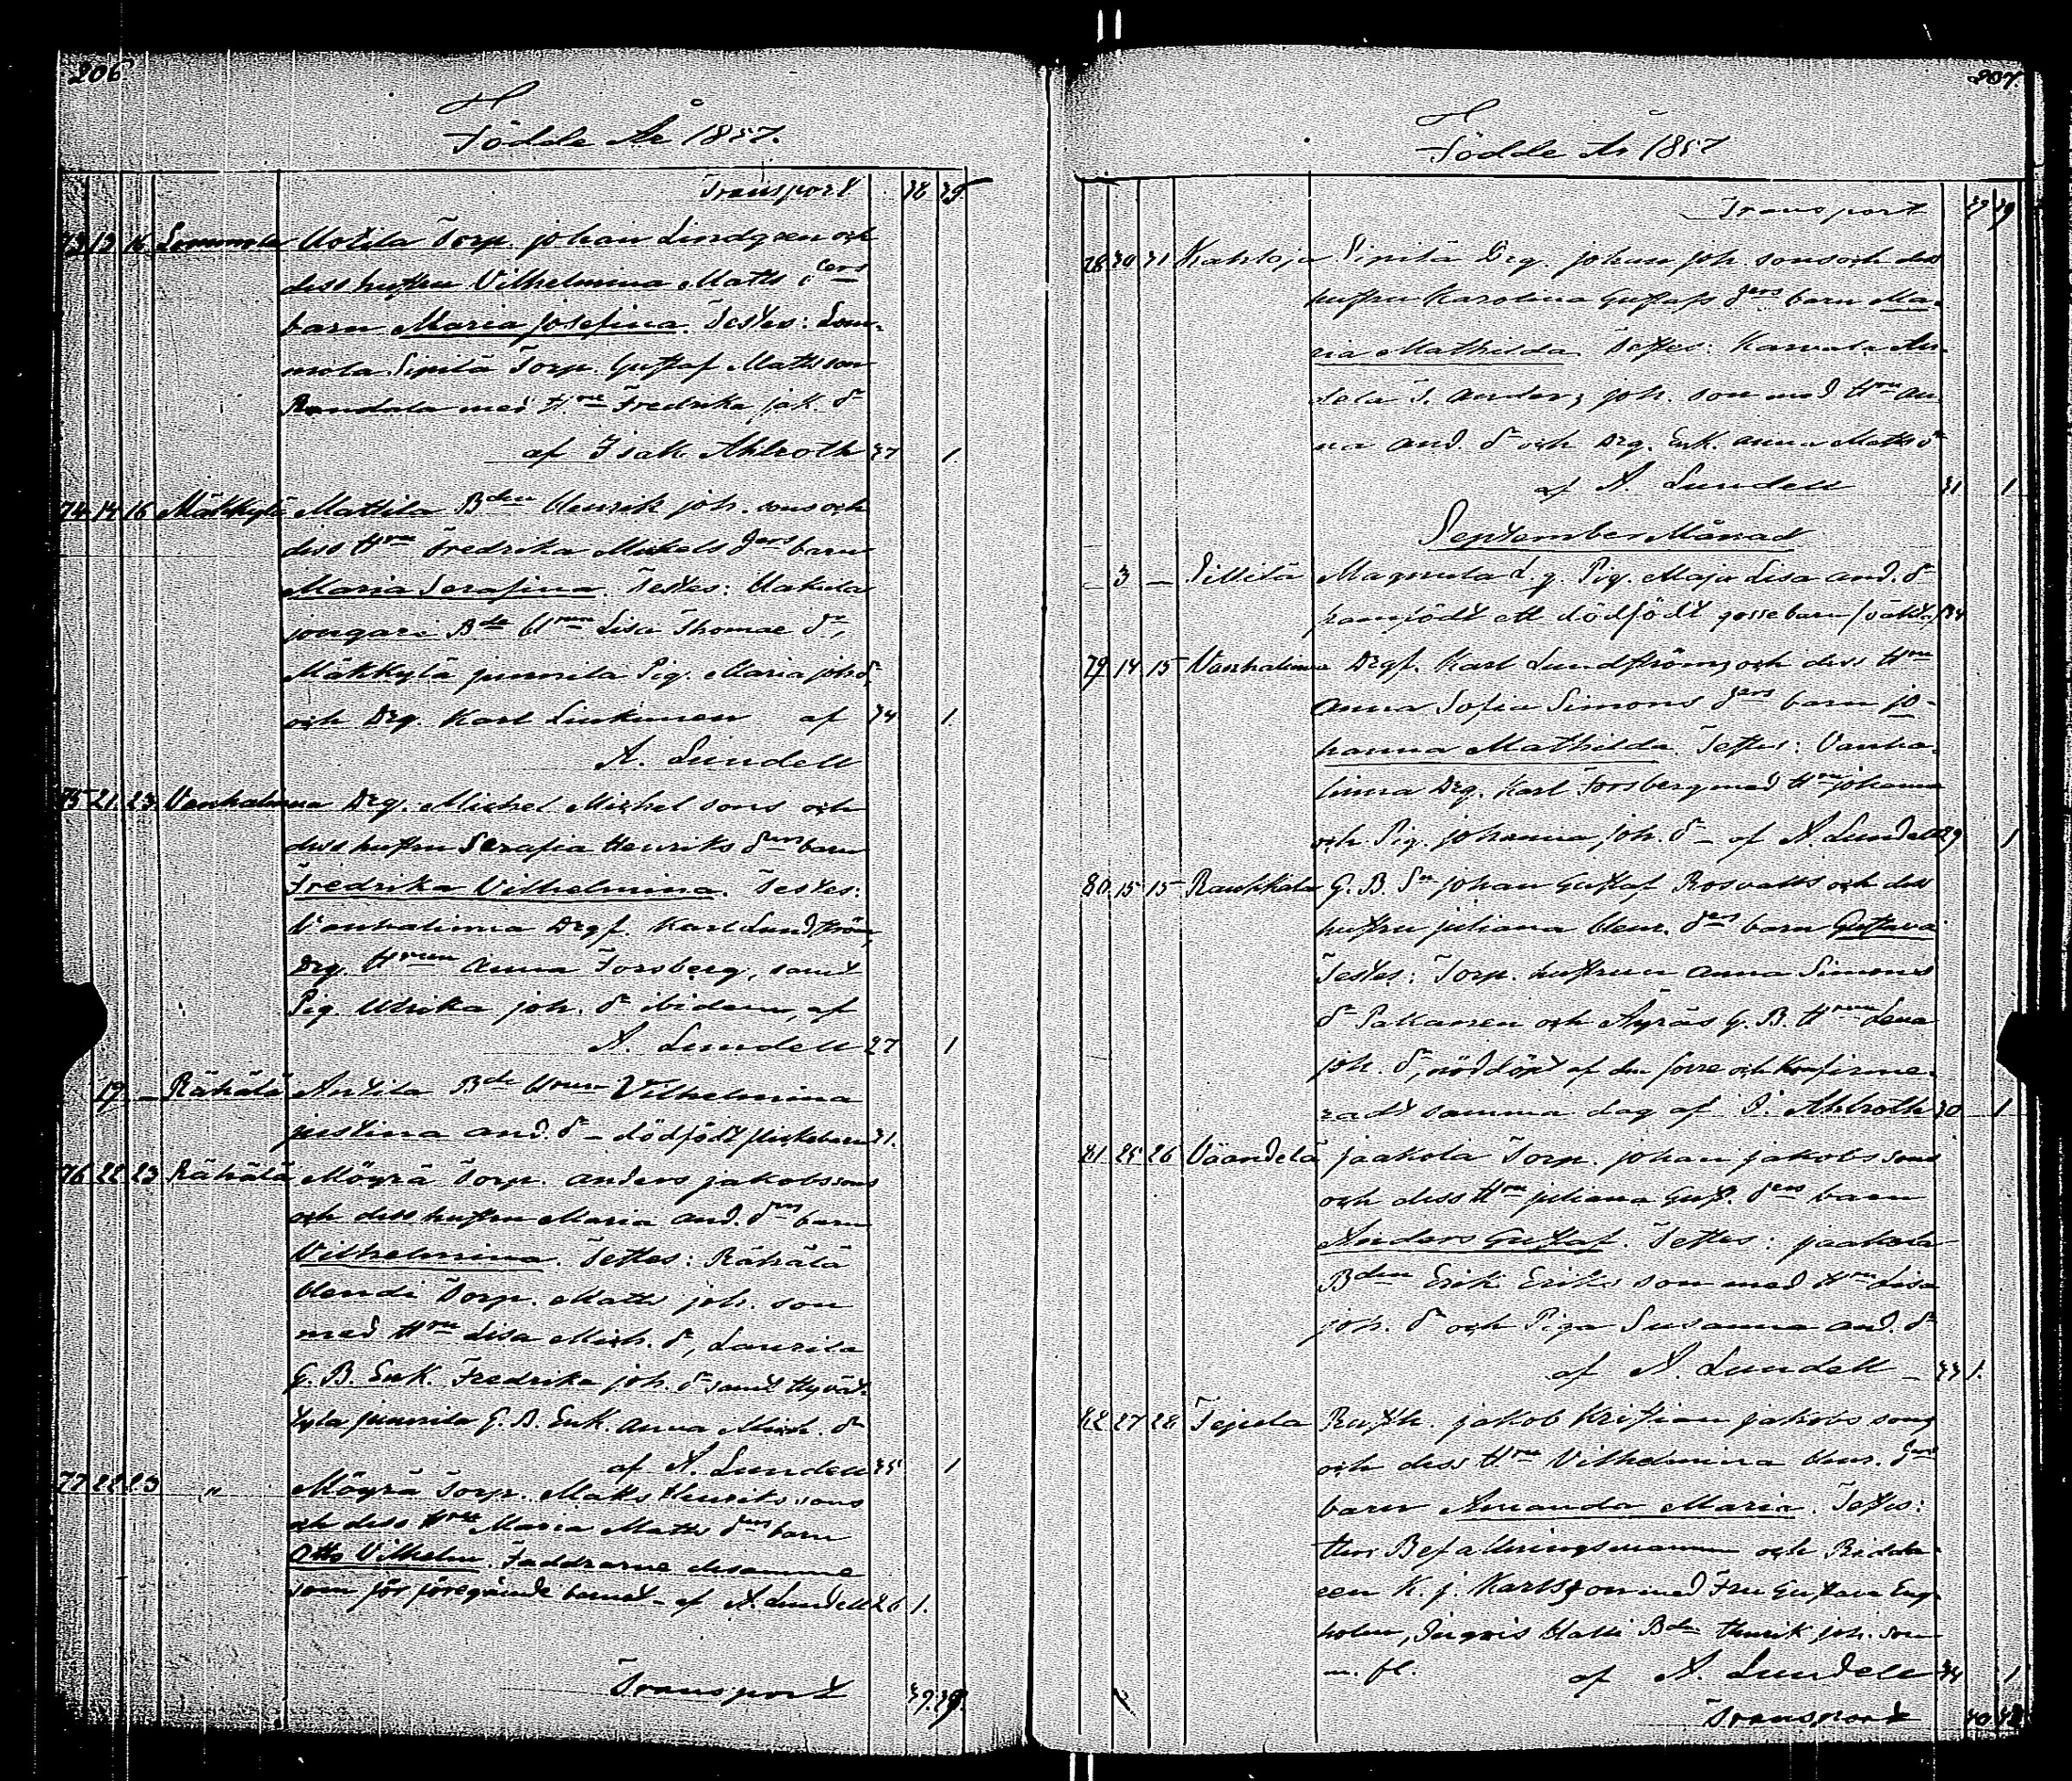 206
Födde År 1857.
Transport 38 35
73 13 16 Lommola Uotila Torp. Johan Lindgren och
dess hustru Vilhelmina Matts ders
barn Maria Josefina. Testes: Lom-
mola Sipilä Torp. Gustaf Mattsson
Randala med H:ru Fredrika Jak. dr
af Isak Ahlroth 37 1.
74 14 16 Mäkkylä Mattila Bden Henrik Joh. sons och
dess Hru Fredrika Mickels ders barn
Maria Serafina. Testes: Uakula
jougari Bde Hrun Lisa Thomae dr,
Mäkkylä junnila Pig. Maria Joh. dr
och Drg. Karl Liukunen af 34 1.
A. Lundell
75 21 23 Vanhalinna Drg. Michel Michel sons och
dess hustru Serafia Henriks ders barn
Fredrika Vilhelmina. Testes:
Vanhalinna Drgf. Karl Lundström,
Drg. Hrun Anna Forsberg, samt
Pig Ulrika Joh. dr ibidem, af
A. Lundell 27 1
19 – Rähälä Antila Bde Hrun Vilhelmina
Justina And. dr – dödfödt flickebarn 31.
76 22 23 Rähälä Möyrä Torp. Anders Jakobssons
och dess hustru Maria And. ders barn
Vilhelmina. Testes: Rähälä
Hendi Torp. Matts Joh. son
med Hru Lisa Mich. dr, Laurila
G. B. Enk. Fredrika Joh. dr samt Hyvät-
tylä junnila G. B. Enk. Anna Mich. dr
af A. Lundell 35 1
77 22 23 " Möyrä Torp. Matts Henriks sons
och dess Hru Maria Matts ders barn
Otto Vilhelm. Faddrarne desamme
som för föregående barnet – af A. Lundell 26 1.
Transport 39. 39.
207.
Födde År 1857
Transport 39 39
78 30 31 Karhoja Sipilä Drg. Johan Joh. sons och dess
hustru Karolina Gustafs ders barn Ma-
ria Mathilda. Testes: Karvala An-
tola T. Anders Joh. son med Hru An-
na And. dr och Drg. Enk. Anna Matts dr
af A. Lundell 31 1
September Månad
– 3 – Pillilä Magnula L. g. Pig. Maja Lisa And. dr
framfödt ett dödfödt gossebarn /oäkta/ 34
79 14 15 Vanhalinna Drgf. Karl Lundströms och dess Hru
Anna Sofia Simons ders barn Jo-
hanna Mathilda. Testes: Vanha-
linna Drg. Karl Forsberg med Hru Johanna
och Pig. Johanna Joh. dr – af A. Lundell 29 1
80 15 15 Raukkala G. B. Sn Johan Gustaf Rosvalls och dess
hustru Juliana Henr. ders barn Gustava
Testes: Torp. hustrun Anna Simons
dr Pakanen och Äyräs G. B. Hrun Lena
Joh. dr, nöddöpt af den förre och konfirme-
radt samma dag af I. Ahlroth 30 1
81 25 26 Väändelä Jaakola Torp. Johan Jakobs sons
och dess Hru Juliana Gust. ders barn
Anders Gustaf. Testes: Jaakola
Bden Erik Eriks son med Hru Lisa
Joh. dr och Piga Susanna And. dr
af A. Lundell – 33 1.
82 27 28 Tejula Rusth. Jakob Kristian Jakobs sons
och dess Hru Vilhelmina Henr. ders
barn Amanda Maria. Testes:
Herr Befallningsmannen och Ridda-
ren K. J. Karlsson med Fru Gustava Eng-
holm, Juqvis Matti Bden Henrik Joh. son
m. fl. af A. Lundell 34 1
Transport 40. 43